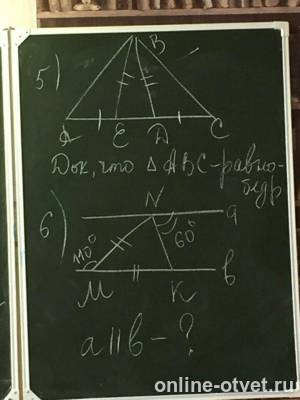 5)
B
A E D C
Док, что △ ABC - равно-
бедр
6)
N a
110° 60°
M K b
a || b - ?
online-otvet.ru